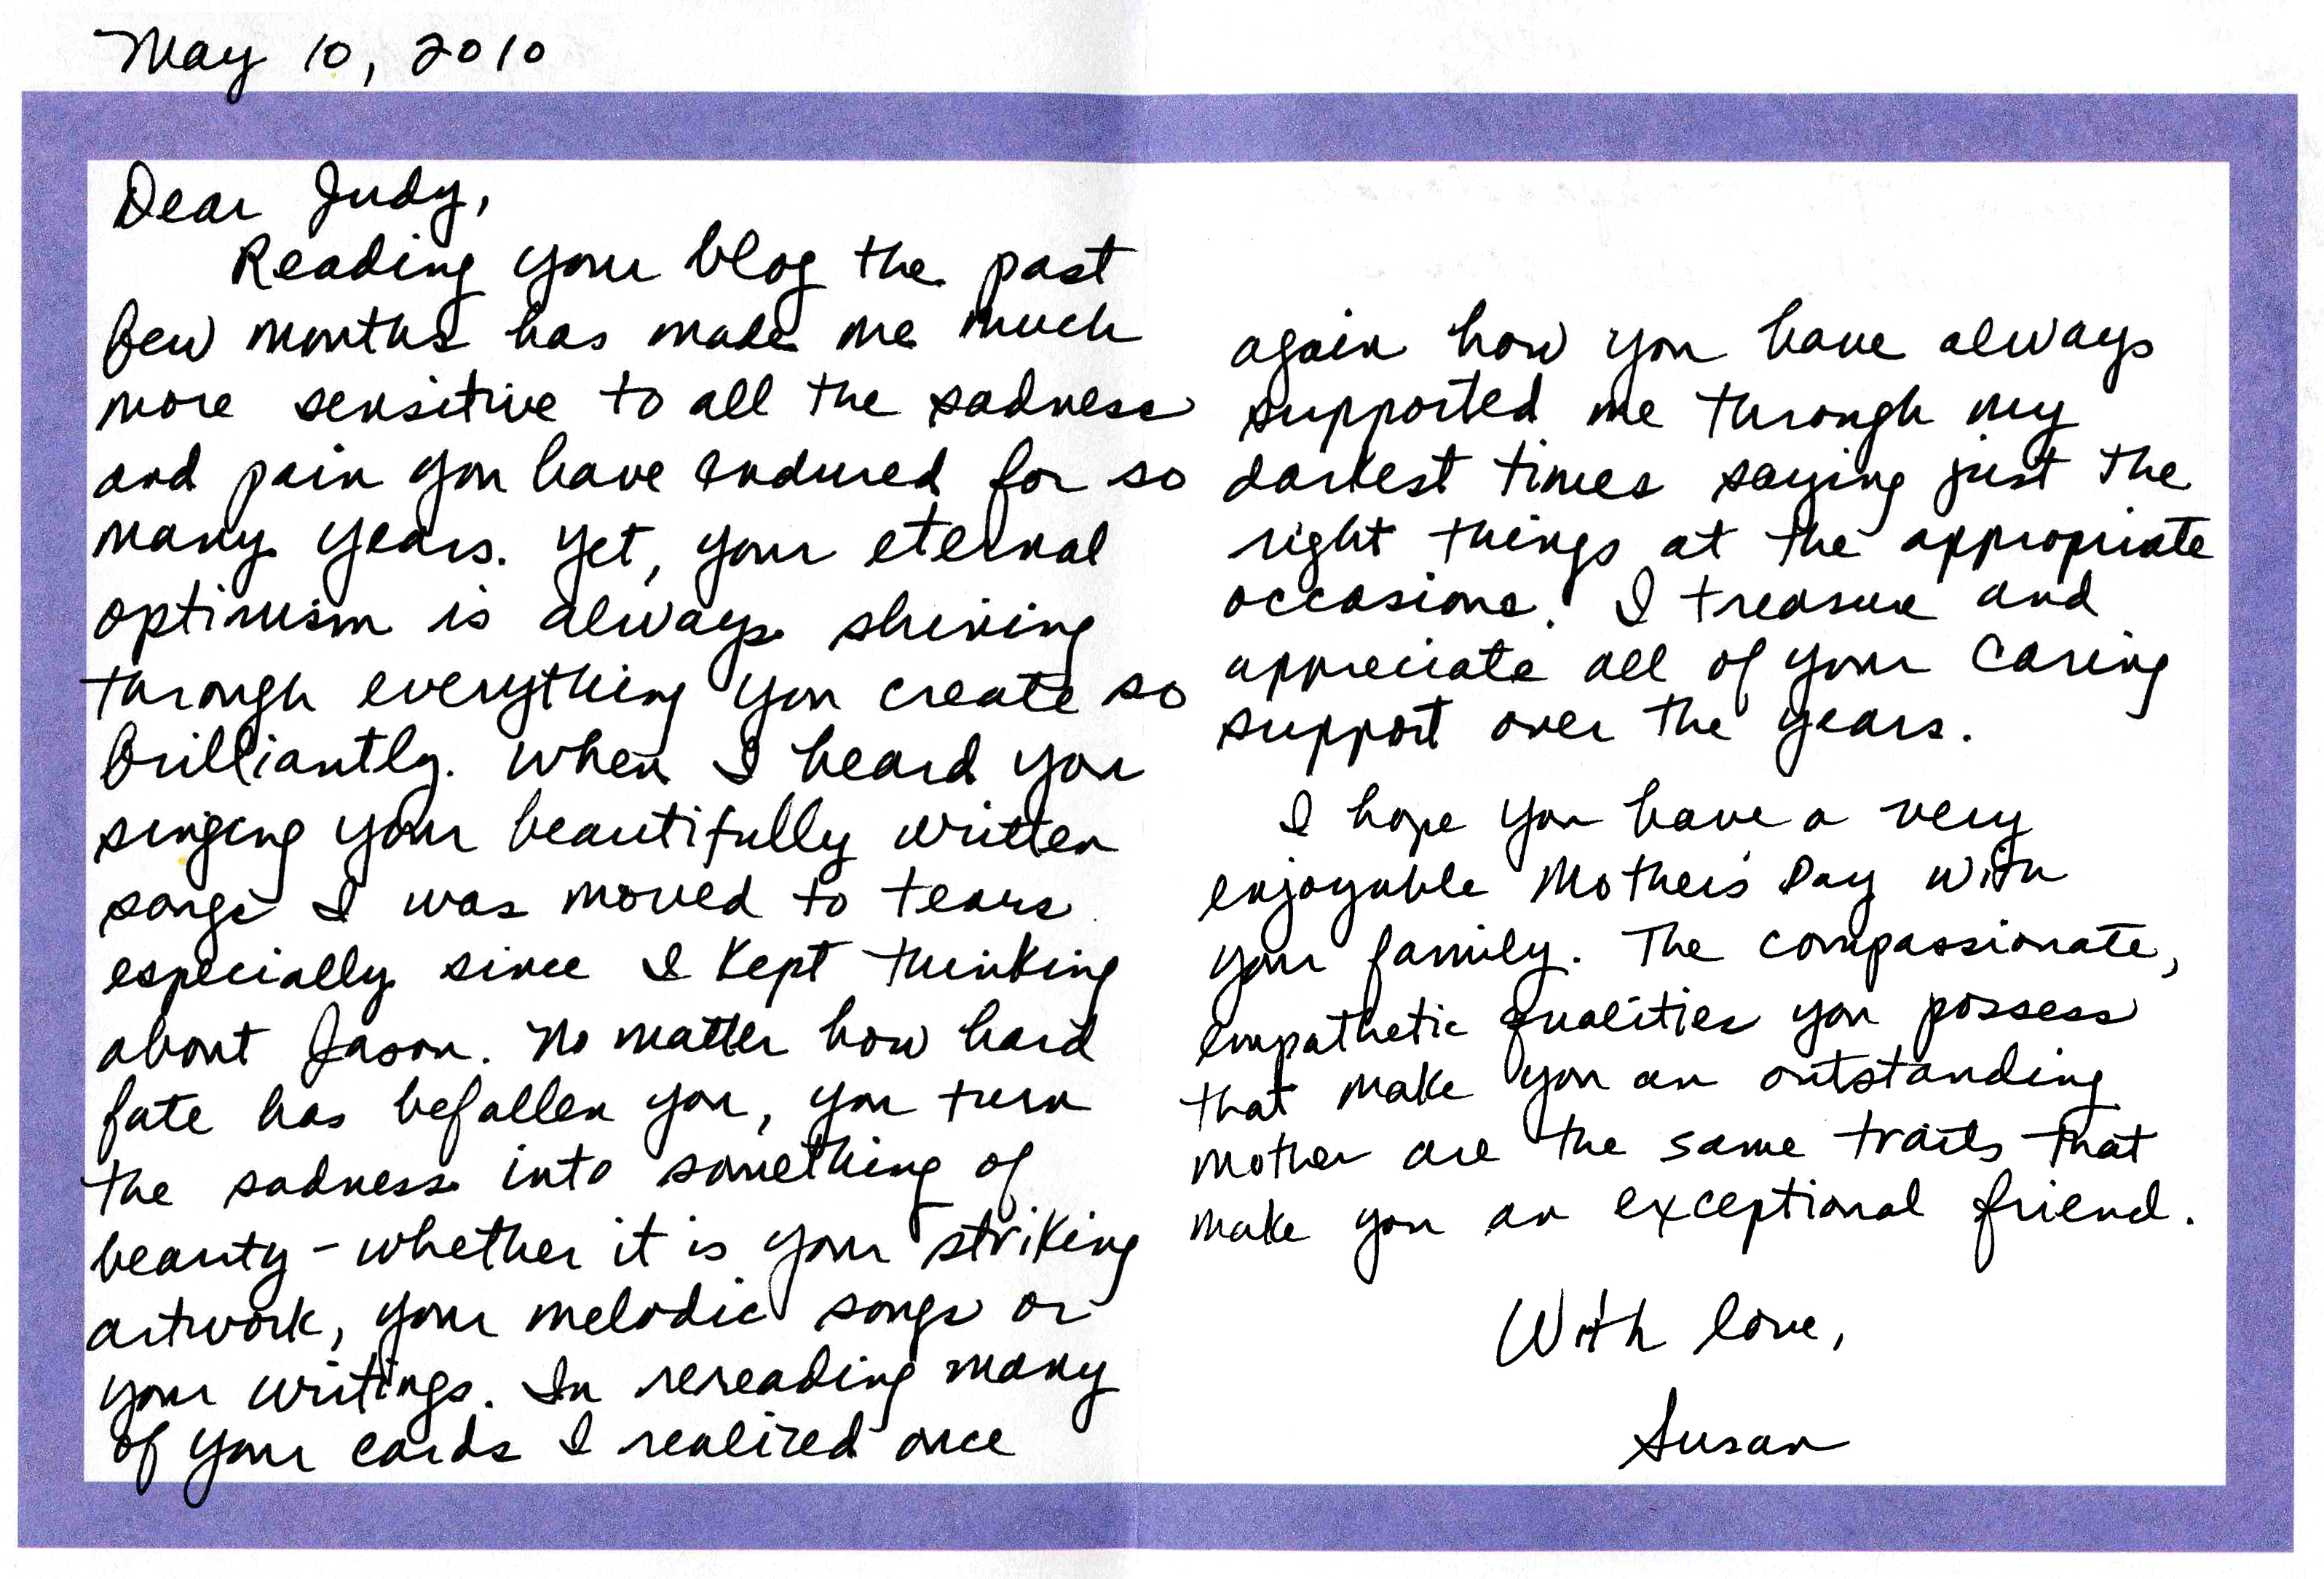 May 10, 2010
Dear Judy,
Reading your blog the past
few months has made me much
more sensitive to all the sadness
and pain you have endured for so
many years. Yet, your eternal
optimism is always shining
through everything you create so
brilliantly. When I heard you
singing your beautifully written
songs I was moved to tears
especially since I kept thinking
about Jason. No matter how hard
fate has befallen you, you turn
the sadness into something of
beauty - whether it is your striking
artwork, your melodic songs or
your writings. In rereading many
of your cards I realized once
again how you have always
supported me through my
darkest times saying just the
right things at the appropriate
occasions. I treasure and
appreciate all of your caring
support over the years.
I hope you have a very
enjoyable Mother's Day with
your family. The compassionate,
empathetic qualities you possess
that make you an outstanding
mother are the same traits that
make you an exceptional friend.
With love,
Susan